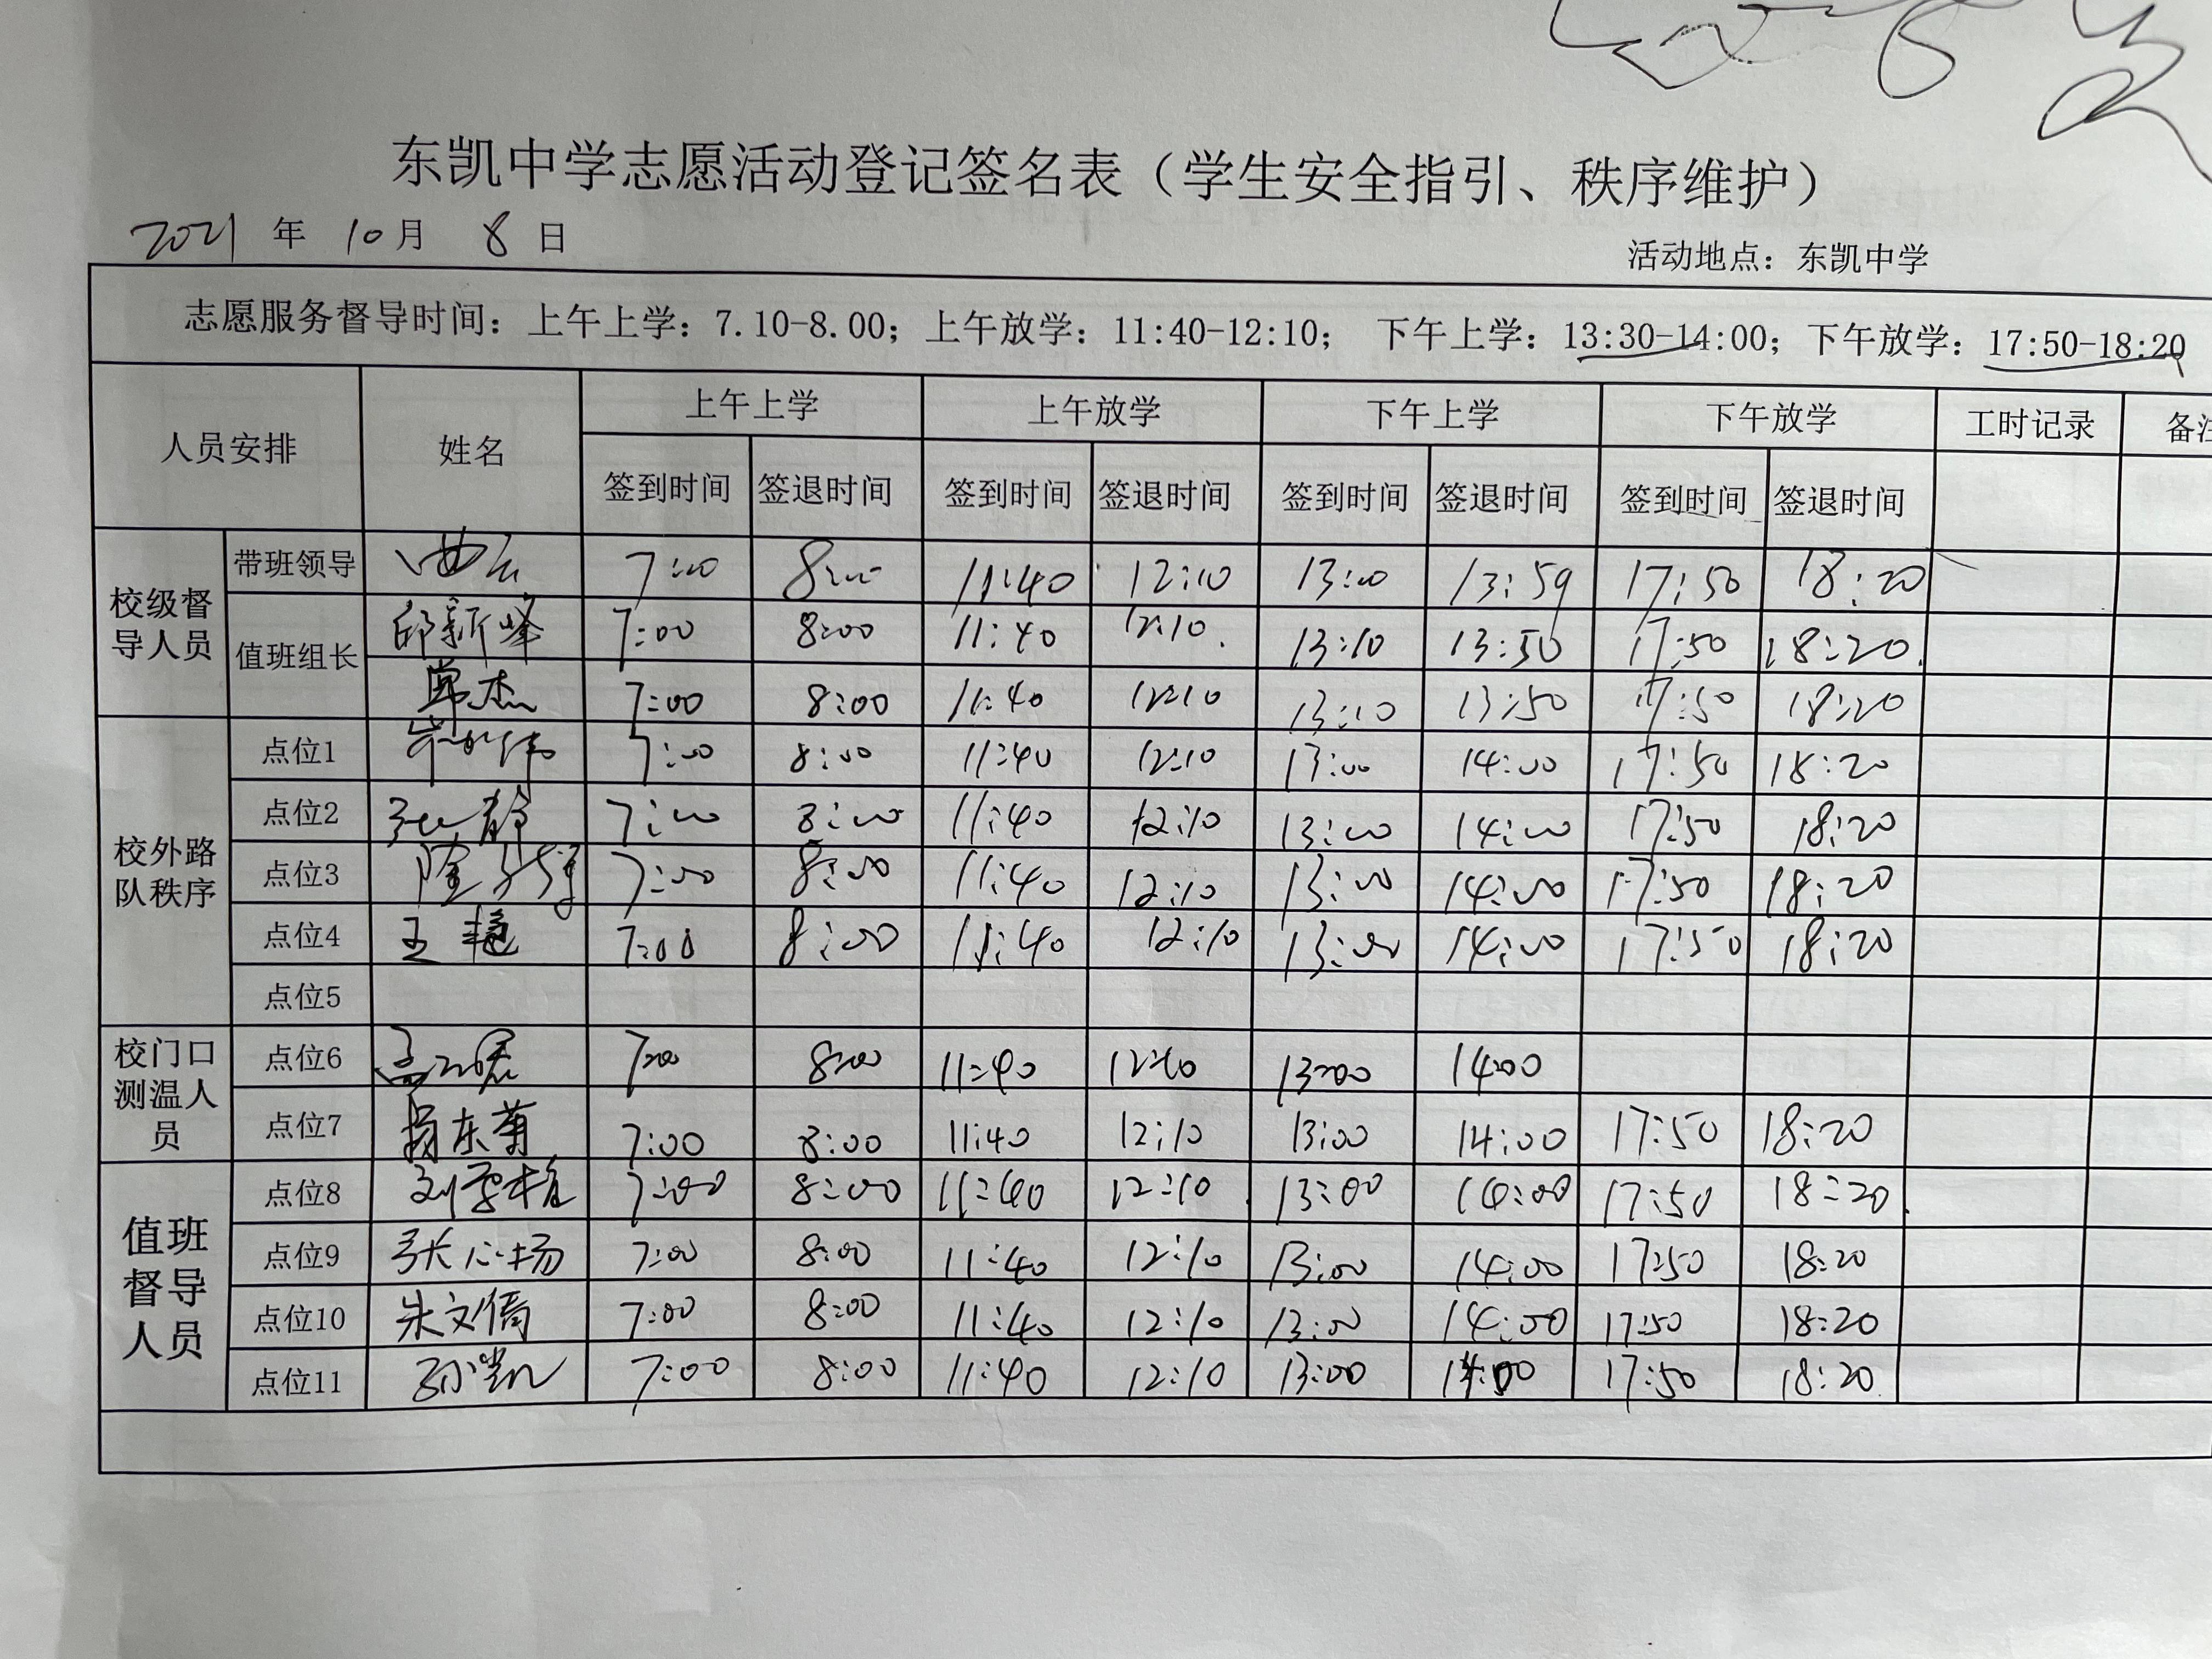 东凯中学志愿活动登记签名表（学生安全指引、秩序维护）
2021 年 10 月 8 日
活动地点：东凯中学
志愿服务督导时间：上午上学：7.10-8.00；上午放学：11:40-12:10； 下午上学：13:30-14:00；下午放学：17:50-18:20
人员安排 姓名 上午上学 上午放学 下午上学 下午放学 工时记录 备注
签到时间 签退时间 签到时间 签退时间 签到时间 签退时间 签到时间 签退时间
校级督导人员
带班领导 7:00 8:00 11:40 12:10 13:00 13:59 17:50 18:20
值班组长 邱新峰 7:00 8:00 11:40 12:10. 13:10 13:50 17:50 18:20.
杰 7:00 8:00 11:40 12:10 13:10 13:50 17:50 18:20
校外路队秩序
点位1 7:00 8:00 11:40 12:10 13:00 14:00 17:50 18:20
点位2 张静 7:00 8:00 11:40 12:10 13:00 14:00 17:50 18:20
点位3 7:00 8:00 11:40 12:10 13:00 14:00 17:50 18:20
点位4 王艳 7:00 8:00 11:40 12:10 13:00 14:00 17:50 18:20
点位5
校门口测温人员
点位6 7:00 8:00 11:40 12:10 13:00 14:00
点位7 杨东菊 7:00 8:00 11:40 12:10 13:00 14:00 17:50 18:20
值班督导人员
点位8 7:00 8:00 11:40 12:10 13:00 14:00 17:50 18:20
点位9 张心扬 7:00 8:00 11:40 12:10 13:00 14:00 17:50 18:20
点位10 朱文倩 7:00 8:00 11:40 12:10 13:00 14:00 17:50 18:20
点位11 孙凯 7:00 8:00 11:40 12:10 13:00 14:00 17:50 18:20